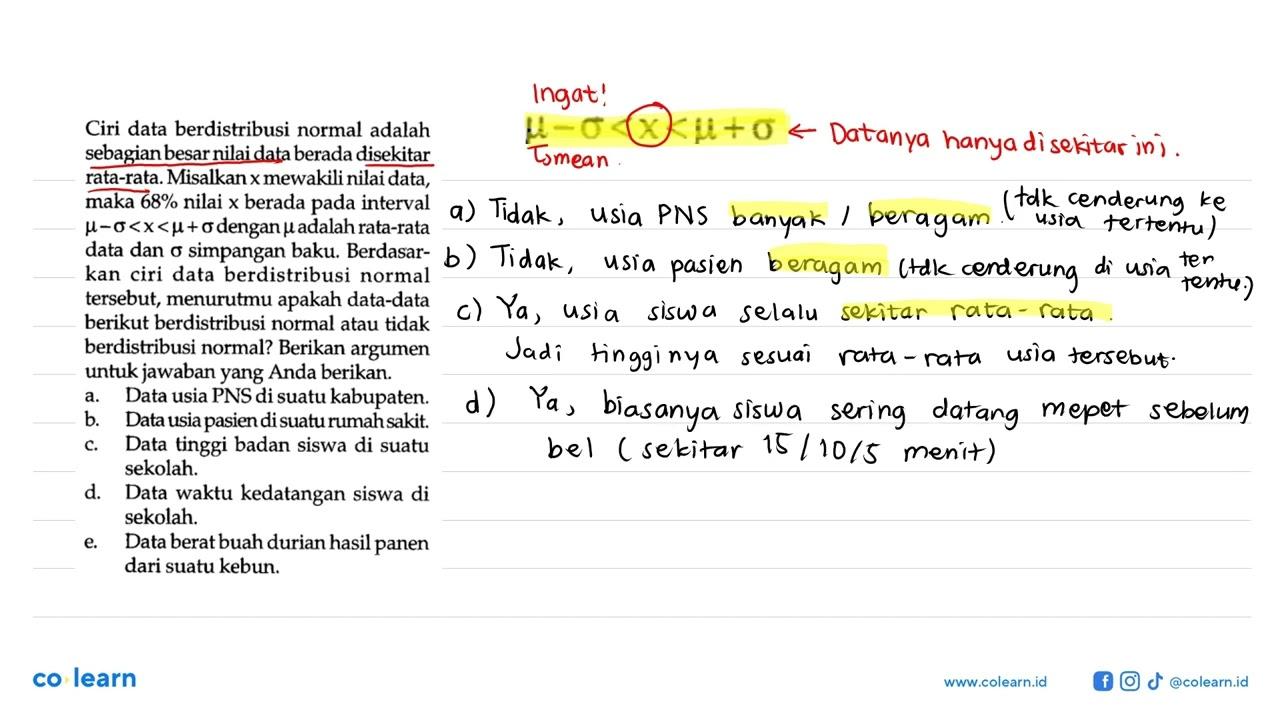 Ciri data berdistribusi normal adalah
sebagian besar nilai data berada disekitar
rata-rata. Misalkan x mewakili nilai data,
maka 68% nilai x berada pada interval
μ–σ<x<μ+σ dengan μ adalah rata-rata
data dan σ simpangan baku. Berdasar-
kan ciri data berdistribusi normal
tersebut, menurutmu apakah data-data
berikut berdistribusi normal atau tidak
berdistribusi normal? Berikan argumen
untuk jawaban yang Anda berikan.
a. Data usia PNS di suatu kabupaten.
b. Data usia pasien di suatu rumah sakit.
c. Data tinggi badan siswa di suatu
sekolah.
d. Data waktu kedatangan siswa di
sekolah.
e. Data berat buah durian hasil panen
dari suatu kebun.
Ingat!
μ – σ < x < μ + σ ← Datanya hanya disekitar ini.
↳ mean.
a) Tidak, usia PNS banyak / beragam. (tdk cenderung ke
usia tertentu)
b) Tidak, usia pasien beragam (tdk cenderung di usia ter
tentu.)
c) Ya, usia siswa selalu sekitar rata-rata.
Jadi tingginya sesuai rata-rata usia tersebut.
d) Ya, biasanya siswa sering datang mepet sebelum
bel (sekitar 15/10/5 menit)
co learn
www.colearn.id
@colearn.id